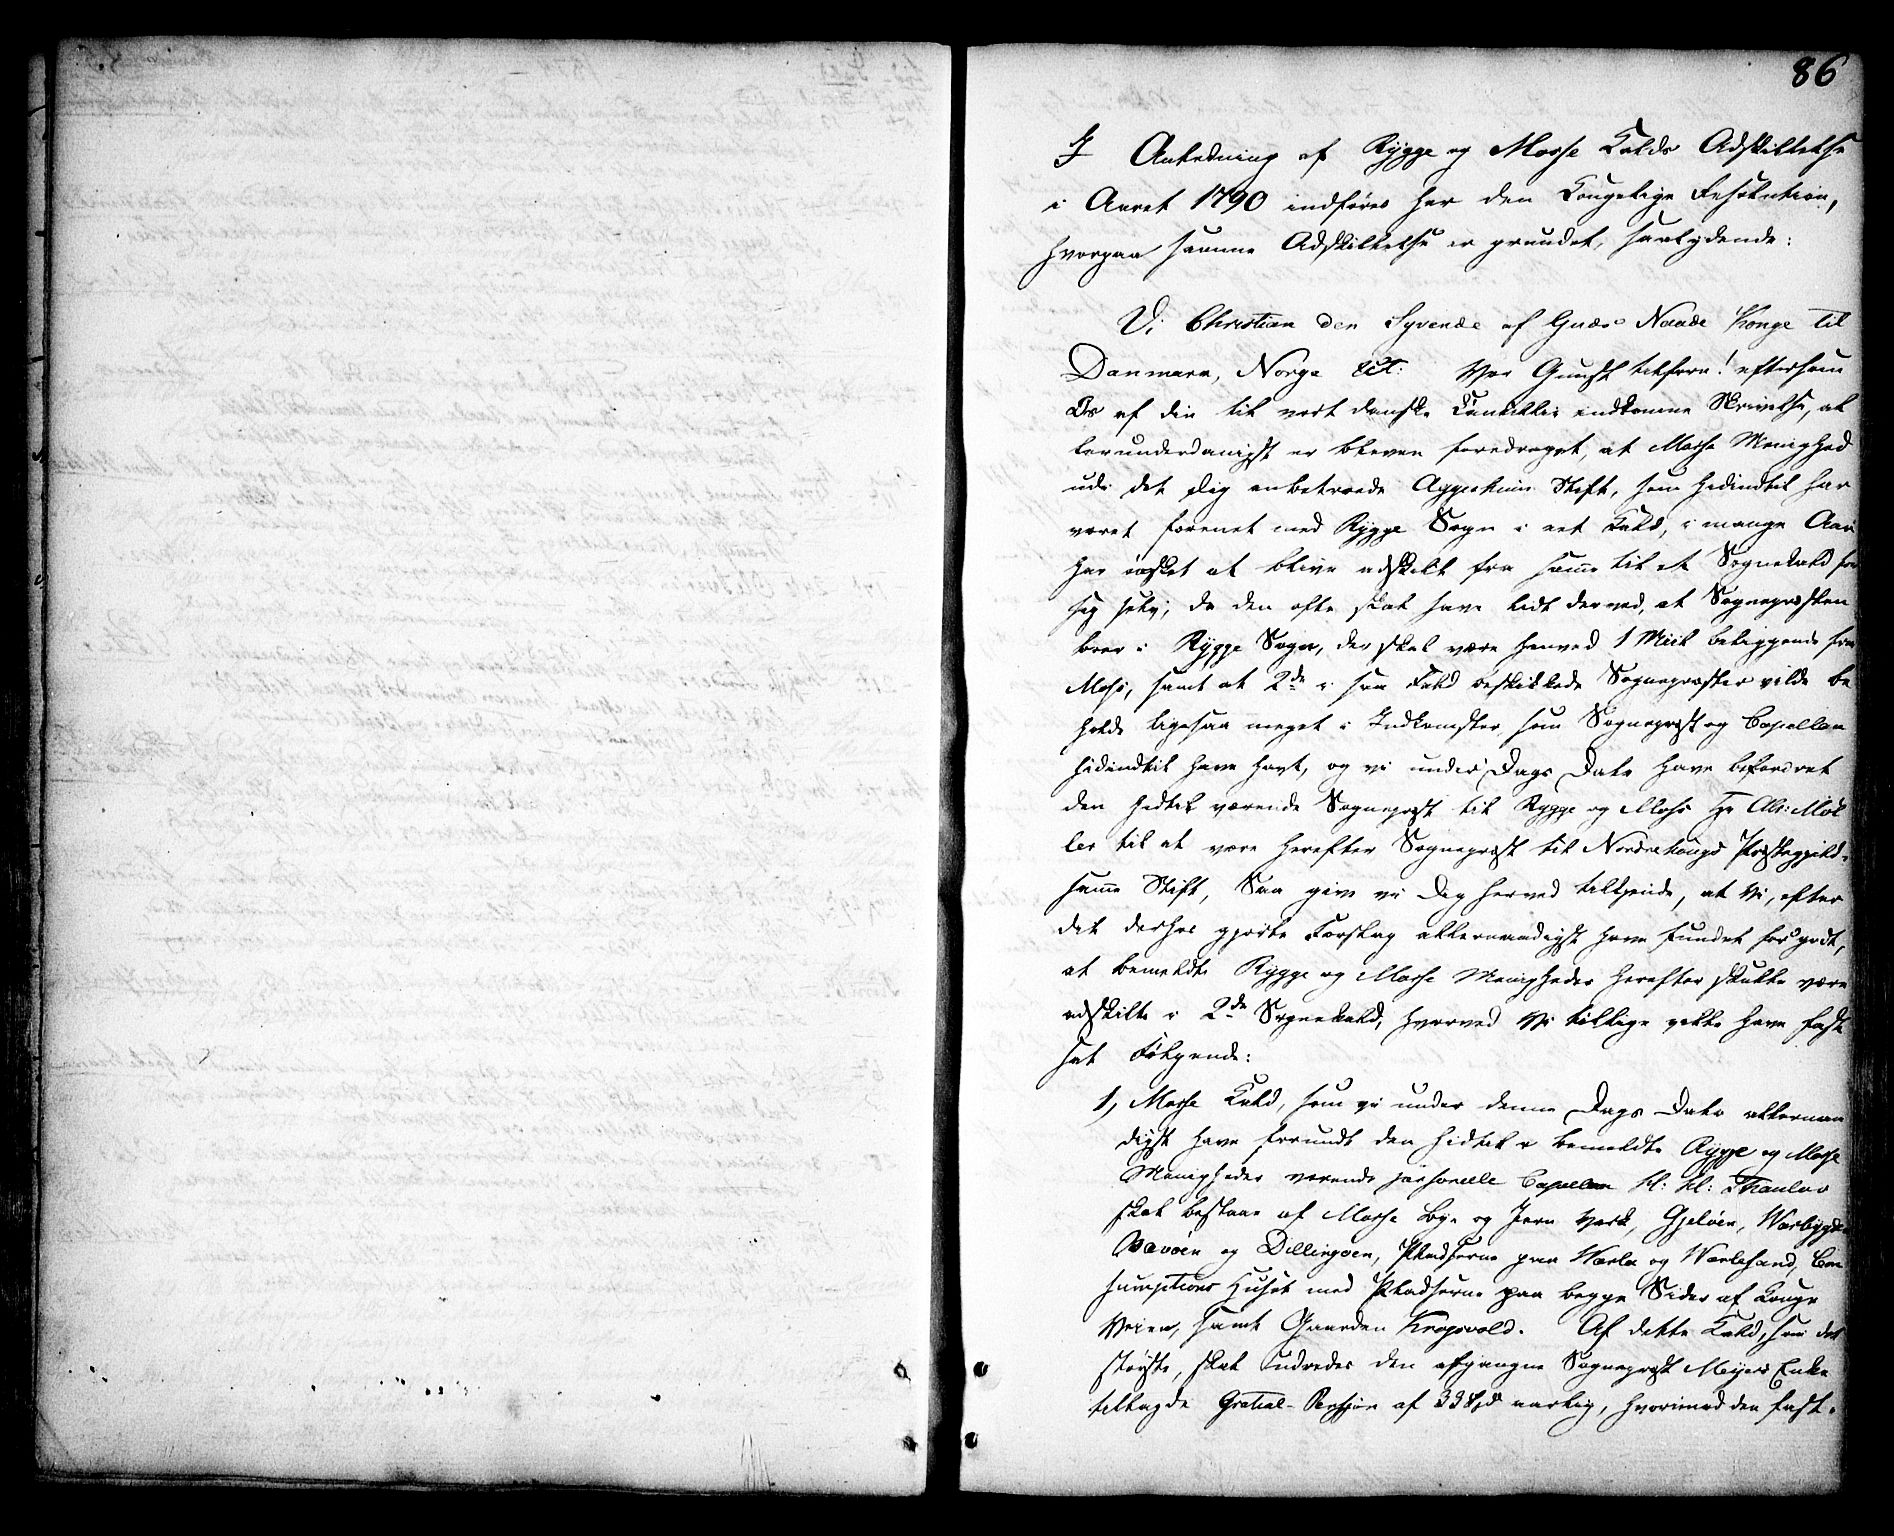 86
I Anledning af Rygge og Mosse Kalds Adskillelse
i Aaret 1790 indføres her den Kongelige Resolution,
hvorpaa samme Adskillelse er grundet, saalydende:
Vi Christian den Syvende af Guds Naade Konge til
Danmark, Norge &ct: Vor Gunst tilforn! eftersom
Os af din til vort danske Cancellie indkomne Skrivelse, al
lerunderdanigst er bleven foredraget, at Mosse Menighed
udi det dig anbetroede Aggershuus Stift, som hidindtil har
været forenet med Rygge Sogn i eet Kald, i mange Aar
har ønsket at blive adskilt fra samme til et Sognekald for
sig selv; da den ofte skal have lidt derved, at Sognepræsten
boer i Rygge Sogn, der skal være henved 1 Miil beliggende fra
Moss, samt at 2de i saa Fald beskikkede Sognepræster vilde be
holde ligesaa meget i Indkomster som Sognepræst og Capellan
hidindtil have havt, og vi under Dags Dato have befordret
den hidtil værende Sognepræst til Rygge og Moss Hr Abr: Møl
ler til at være herefter Sognepræst til Norderhougs Præstegjeld
samme Stift, Saa give vi Dig herved tilkjende, at Vi, efter
det derhos gjorte Forslag allernaadigst have fundet for godt,
at bemeldte Rygge og Mosse Menigheder herefter skulle være
adskilte i 2de Sognekald, hvorved Vi tillige ville have fast
sat Følgende:
1, Mosse Kald, som vi under denne Dags Dato allernaa
digst have forundt den hidtil i bemeldte Rygge og Mosse
Menigheder værende personelle Capellan Thaulov
skal bestaae af Mosse Bye og Jern Værk, Gjeløen, Varbygden
Bævøen og Dillingøen, Pladserne paa Værla og Værlesand, Con
sumptions Huset med Pladserne paa begge Sider af Konge
Veien, samt Gaarden Krogsvold. Af dette Kald, som det
største, skal udredes den afgangne Sognepræst Meyers Enke
tillagde Gratial-Pension af 33 rd aarlig, hvorimod den fast-